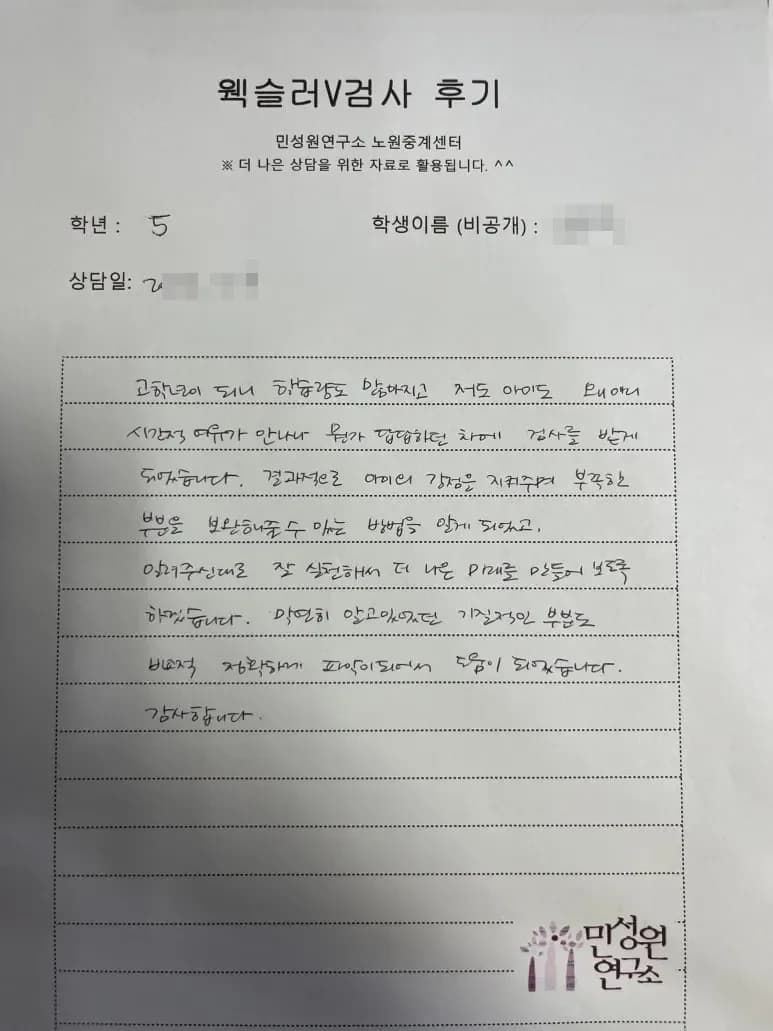 웩슬러V검사 후기
민성원연구소 노원중계센터
※ 더 나은 상담을 위한 자료로 활용됩니다. ^^
학년 : 5
학생이름 (비공개) :
상담일: 2
고학년이 되니 학습량도 많아지고 저도 아이도
시간적 여유가 안나나 뭔가 답답하던 차에 검사를 받게
되었습니다. 결과적으로 아이의 강점은 지켜주며 부족한
부분을 보완해줄 수 있는 방법을 알게 되었고,
알려주신대로 잘 실천해서 더 나은 미래를 만들어 보도록
하겠습니다. 막연히 알고있었던 기질적인 부분도
비교적 정확하게 파악이되어서 도움이 되었습니다.
감사합니다.
민성원
연구소